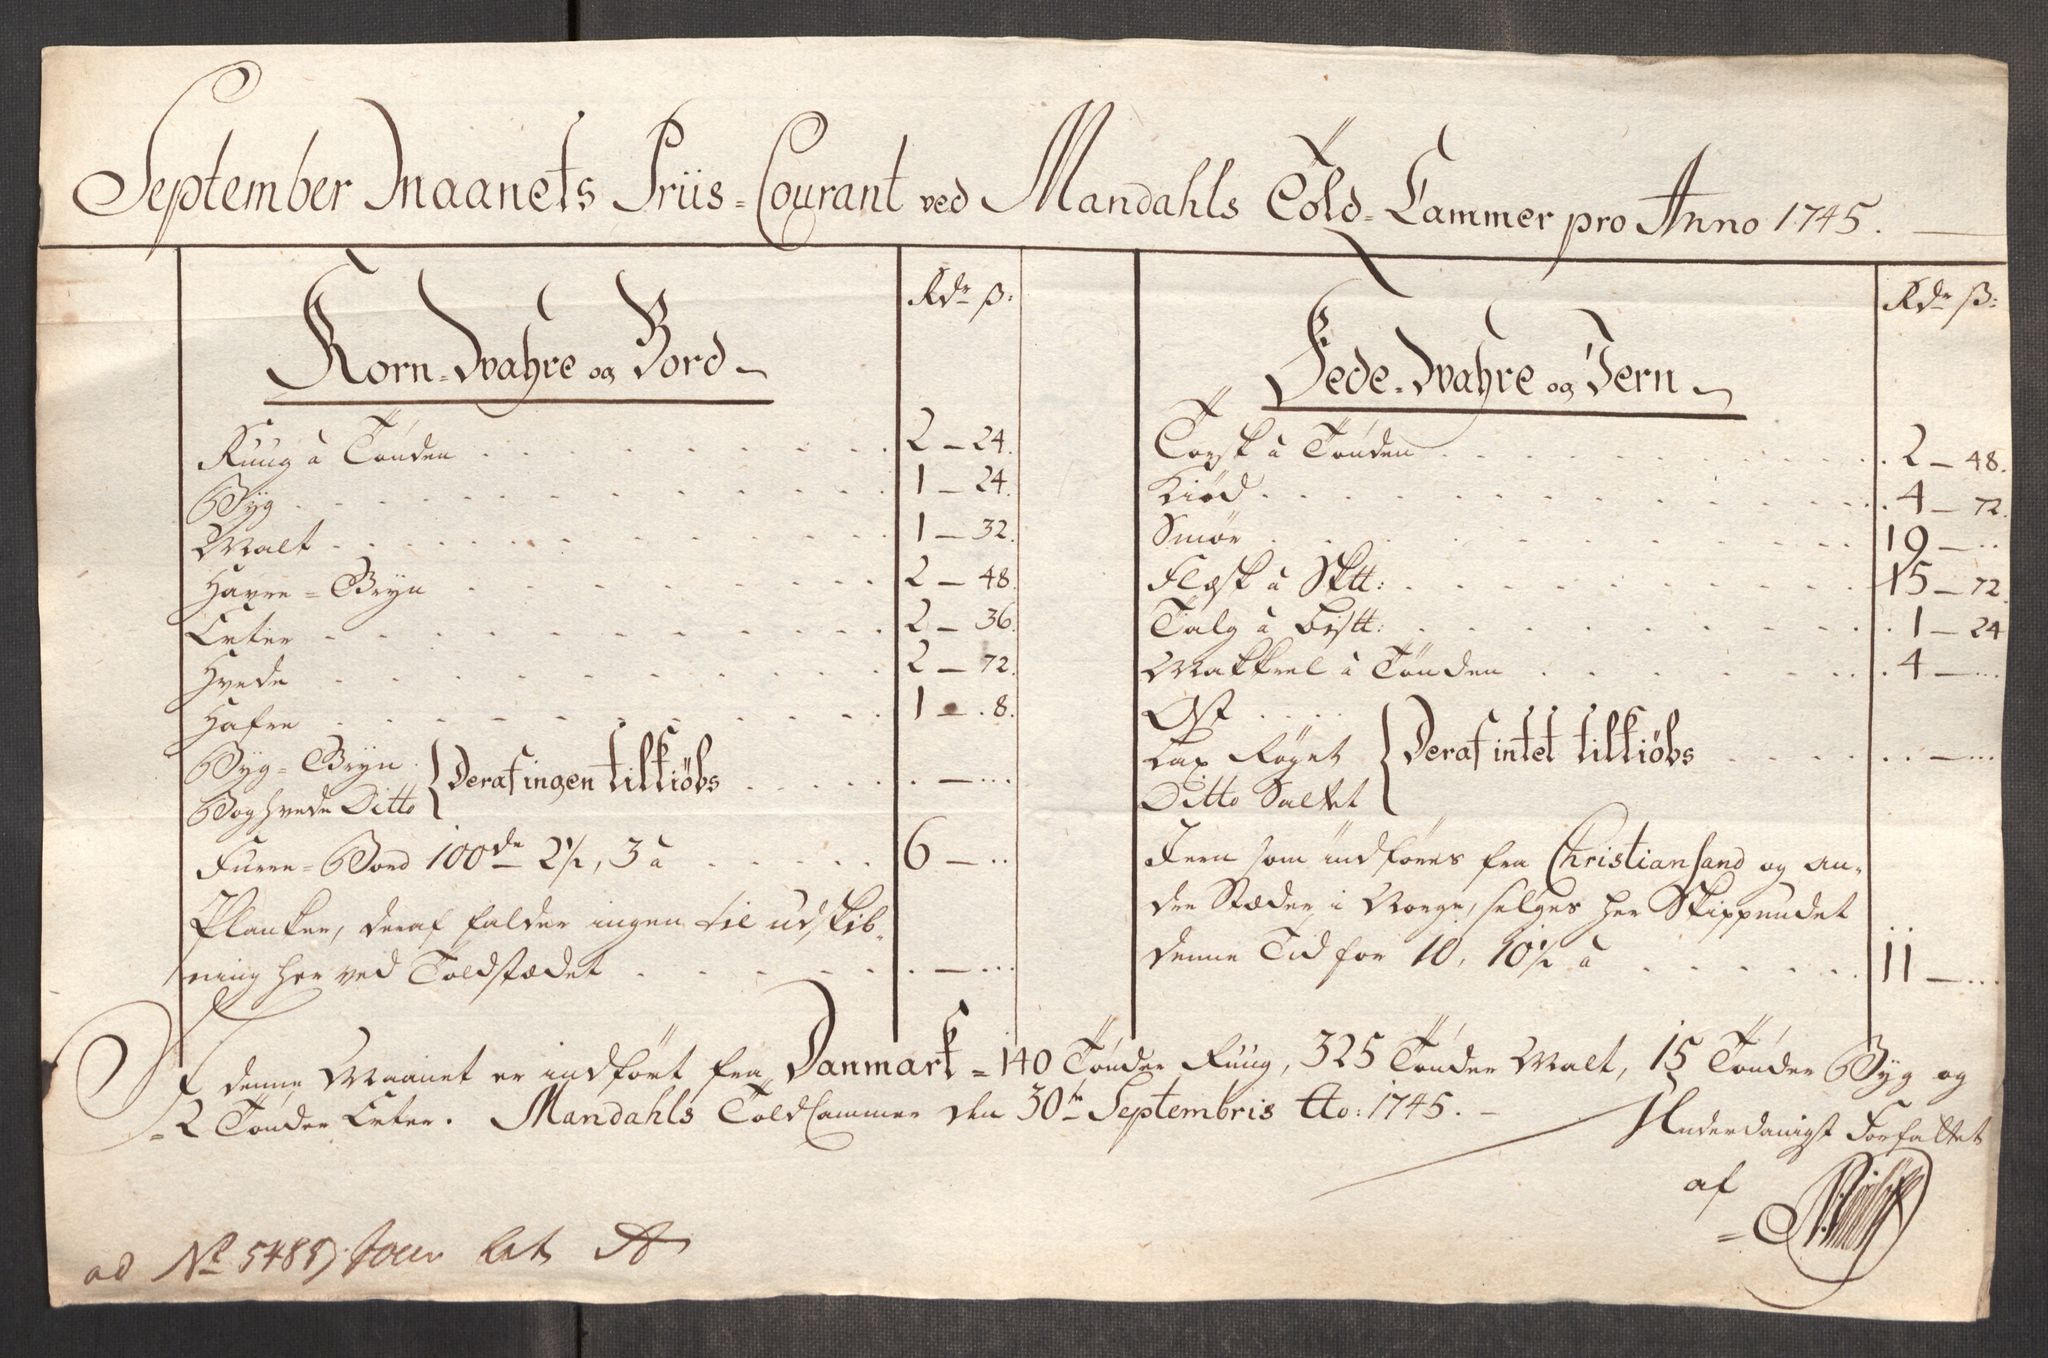 September Maanets Priis-Courant ved Mandahls Told-Cammer pro Anno 1745.
Korn-Wahre og Bord
Rdr ß:
Ruug à Tønden 2 - 24.
Byg 1 - 24.
Malt 1 - 32.
Havre-Gryn 2 - 48.
Erter 2 - 36.
Hvede 2 - 72.
Hafre 1 - 8.
Byg-Gryn
Boghvede Ditto
Deraf ingen tilkiøbs
Furre-Bord 100de 2½, 3 à 6 -
Planker, deraf falder ingen til udskib-
ning her ved Toldstædet
Fede-Wahre og Jern
Rdr ß:
Torsk à Tønden 2 - 48.
Kiød 4 - 72.
Smør 19 -
Flæsk à Sktt: 15 - 72.
Talg à Bsktt: 1 - 24
Makkrel à Tønden 4 -
Ost
Lax Røget
Ditto Saltet
Deraf intet tilkiøbs
Jern som indføres fra Christiansand og an-
dre Stæder i Norge, selges her Skippundet
denne Tid for 10, 10½ à 11 -
I denne Maanet er indført fra Danmark = 140 Tønder Ruug, 325 Tønder Malt, 15 Tønder Byg og
2 Tønder Erter. Mandahls ToldCammer den 30te Septembris Ao: 1745.
Underdanigst Forfattet
af
ad No 5485 Jour Lit A